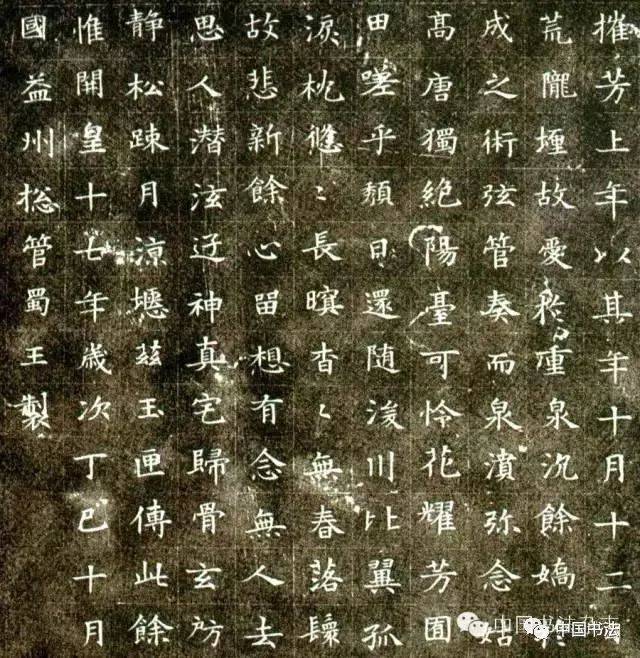 摧芳上年以其年十月十二日
荒隴堙故愛於重泉沉餘嬌於
成之術弦管奏而泉濆弥念姑
高唐獨絶陽臺可怜花耀芳囿
田嗟乎頹日還随湲川比翼孤
淚枕悠〻長暝杳〻無春落鬟
故悲新餘心留想有念無人去
思人潜泫迓神真宅歸骨玄房
静松踈月涼瘞兹玉匣傳此餘
惟開皇十七年歲次丁巳十月
國益州揔管蜀王製
中国书法